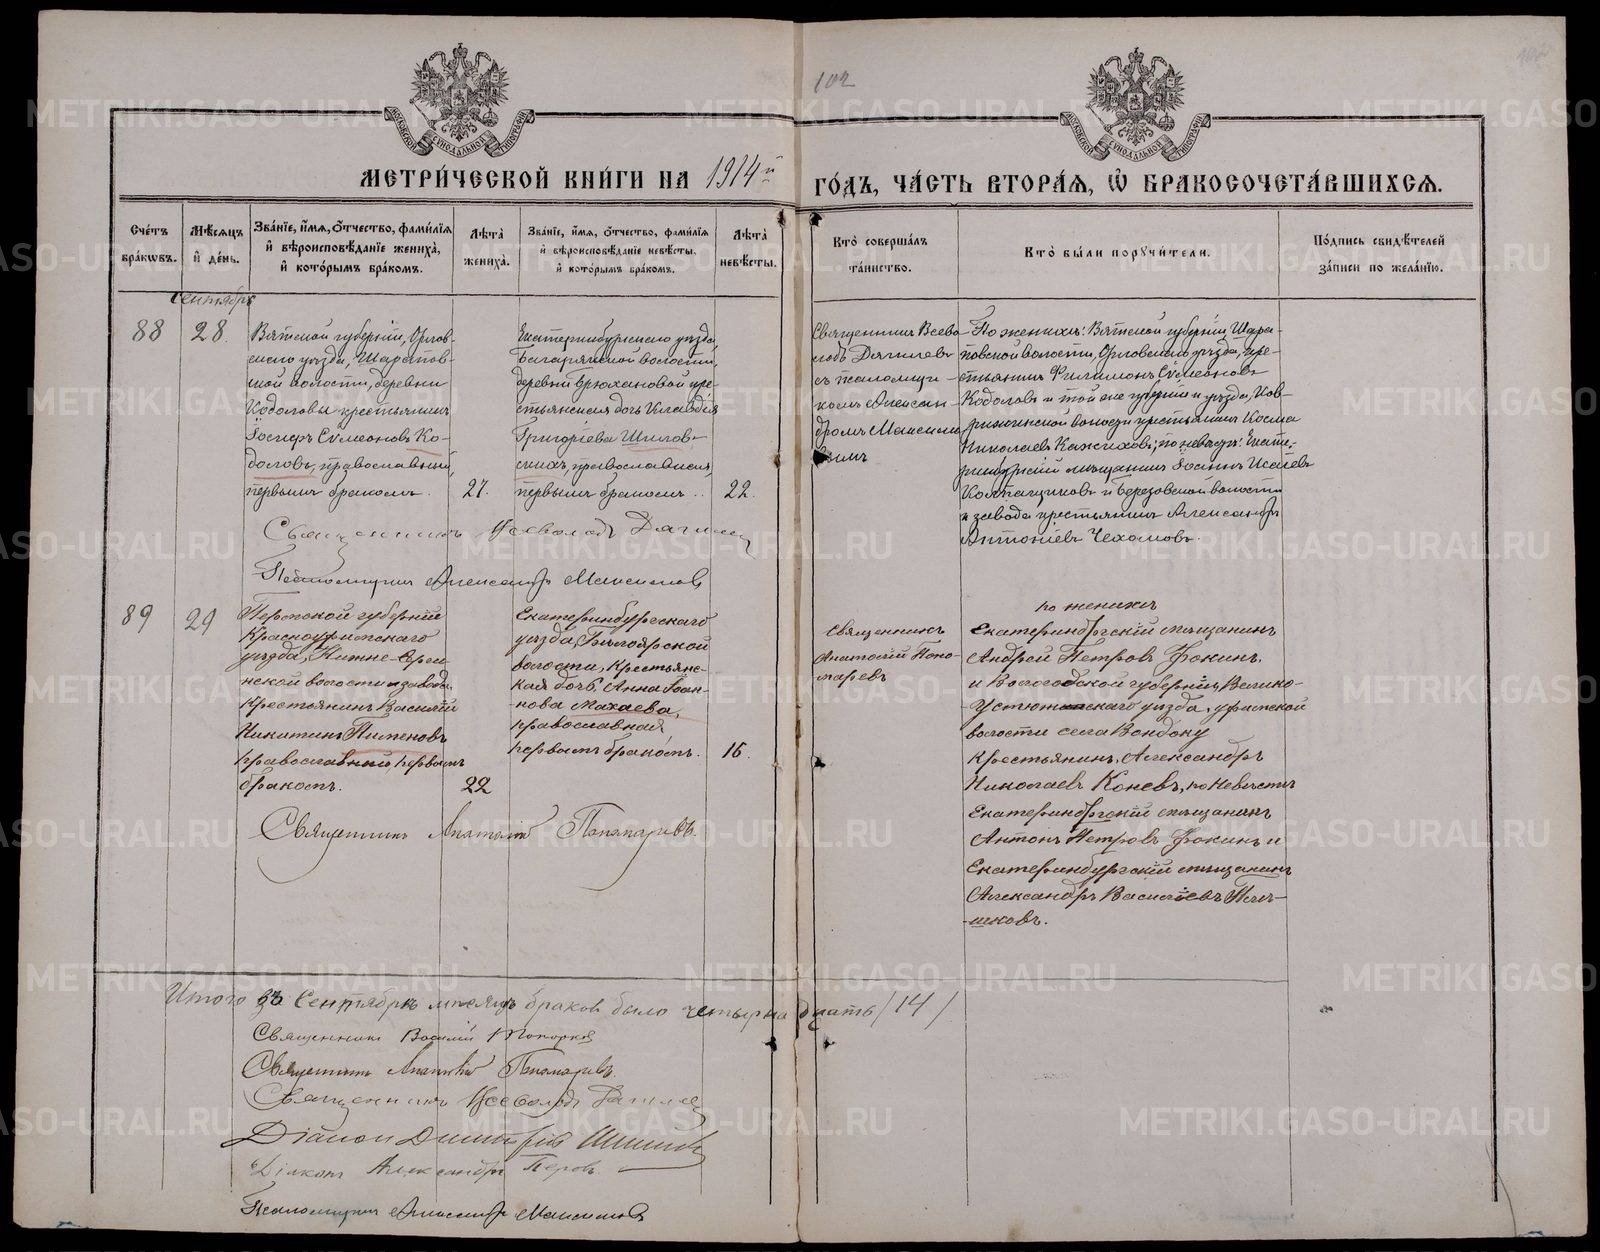 102
МОСКОВСКОЙ СУНОДАЛЬНОЙ ТИПОГРАФІИ
МОСКОВСКОЙ СУНОДАЛЬНОЙ ТИПОГРАФІИ
МЕТРИ́ЧЕСКОЙ КНИ́ГИ НА 1914й
ГО́ДЪ, ЧА́СТЬ ВТОРА́Я, Ѽ БРАКОСОЧЕТА́ВШИХСЯ.
Сче́тъ бра́кѡвъ.
Мѣ́сяцъ и҆ де́нь.
Зва́нїе, и҆́мя, ѻ҆́тчество, фами́лїя и҆ вѣроисповѣ́данїе жениха̀, и҆ кото́рымъ бра́комъ.
Лѣта̀ жениха̀.
Зва́нїе, и҆́мя, ѻ҆́тчество, фами́лїя и҆ вѣроисповѣ́данїе невѣ́сты, и҆ кото́рымъ бра́комъ.
Лѣта̀ невѣ́сты.
Кто̀ соверша́лъ та́инство.
Кто̀ бы́ли порꙋчи́тели.
По́дпись свидѣ́телей за́писи по жела́нїю.
Сентябрь
88
28.
Вятской губерніи, Орлов-
скаго уѣзда, Шарапов-
ской волости, деревни
Кодоловы крестьянинъ
Іосифъ Сѵмеоновъ Ко-
доловъ, православный,
первымъ бракомъ.
27.
Екатеринбургскаго уѣзда,
волости,
деревни Брюхановой кре-
стьянская дочь Клавдія
Григоріева Шилов-
скихъ, православная,
первымъ бракомъ.
22.
Священникъ Всево-
лодъ Дягилевъ
съ псаломщи-
комъ Алексан-
дромъ Максимо-
вымъ
По женихѣ: Вятской губерніи, Шара-
повской волости, Орловскаго уѣзда, кре-
стьянинъ Филимонъ Сѵмеоновъ
Кодоловъ и той же губерніи и уѣзда,
волости крестьянинъ Косма
Николаевъ; по невѣстѣ: Екате-
ринбургскій мѣщанинъ Іоаннъ Исаіевъ
Колпащиковъ и Березовской волости
и завода крестьянинъ Александръ
Антоніевъ Чехомовъ.
Священникъ Всеволодъ Дягилевъ
Псаломщикъ Александръ Максимовъ
89
29
Пермской губерніи
Красноуфимскаго
уѣзда, Нижне-Серги-
нской волости и завода,
Крестьянинъ Василій
Никитинъ Пименовъ
православный, первымъ
бракомъ.
22
Екатеринбургскаго
уѣзда, Бѣлоярской
волости, Крестьянс-
кая дочь, Анна Іоан-
нова Махаева,
православная
первымъ бракомъ.
16.
Священникъ
Анатолій Поно-
маревъ
по женихѣ
Екатеринбургскій мѣщанинъ
Андрей Петровъ Фокинъ.
и Вологодской губерніи, Велико-
Устюжскаго уѣзда,
волости села Вондоку
Крестьянинъ, Александръ
Николаевъ Коневъ, по невѣстѣ
Екатеринбургскій мѣщанинъ
Антонъ Петровъ Фокинъ и
Екатеринбургскій мѣщанинъ
Александръ Васильевъ Плѣ-
шковъ.
Священникъ Анатолій Пономаревъ.
Итого въ Сентябрѣ мѣсяцѣ браковъ было четырнадцать /14/
Священникъ Василій Топорковъ
Священникъ Анатолій Пономаревъ.
Священникъ Всеволодъ Дягилевъ
Діаконъ Димитрій Шишовъ
Діаконъ Александръ Перовъ.
Псаломщикъ Александръ Максимовъ
METRIKI.GASO-URAL.RU